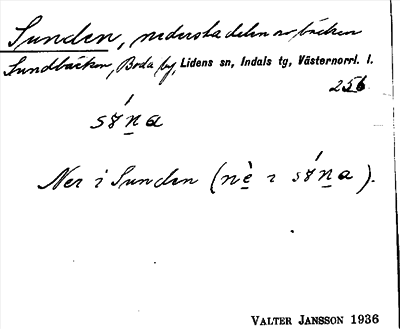 Sunden, nedersta delen av bäcken
Sundbäcken, Boda by, Lidens sn, Indals tg, Västernorrl. l.
256
Ner i Sunden (
VALTER JANSSON 1936